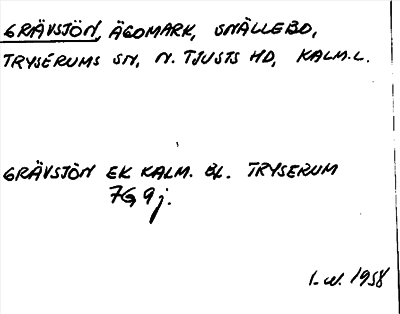 GRÄVSJÖN, ÄGOMARK, SNÄLLEBO,
TRYSERUMS SN, N. TJUSTS HD, KALM.L.
GRÄVSJÖN EK KALM. BL. TRYSERUM
7G 9j.
1958